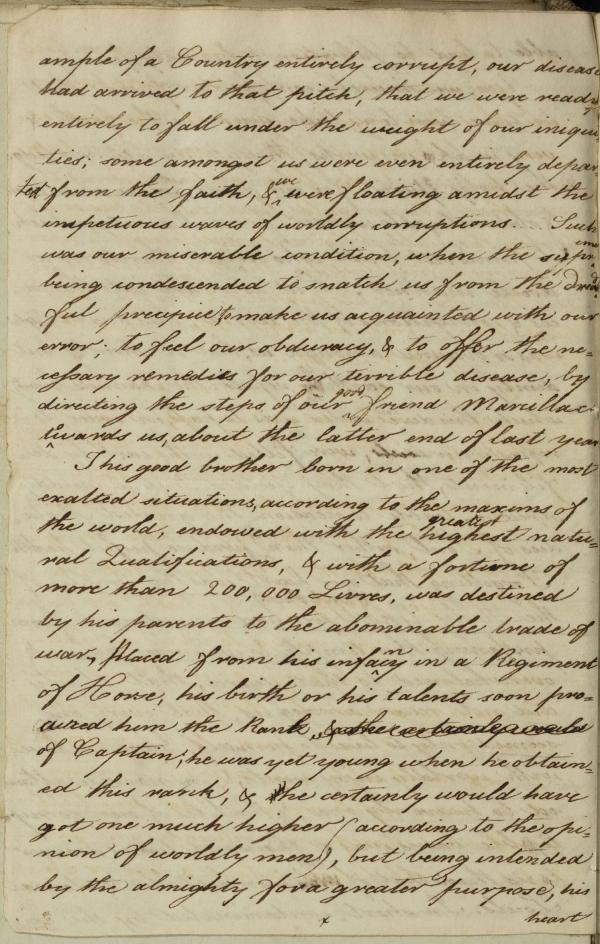 ample of a Country entirely corrupt, our disease
had arrived to that pitch, that we were ready
entirely to fall under the weight of our iniqui
ties; some amongst us were even entirely depar
ted from the faith, & we were floating amidst the
impetuous waves of worldly corruptions... Such
was our miserable condition, when the supreme
being condescended to snatch us from the dread
ful precipice to make us acquainted with our
error; to feel our obduracy, & to offer the ne=
cessary remedies for our terrible disease, by
directing the steps of our good friend Marcillac
towards us, about the latter end of last year
This good brother born in one of the most
exalted situations, according to the maxims of
the world, endowed with the highest greatest natu=
ral Qualifications, & with a fortune of
more than 200,000 Livres, was destined
by his parents to the abominable trade of
war, placed from his infancy in a Regiment
of Horse; his birth or his talents soon pro=
cured him the Rank, & he certainly would
of Captain; he was yet young when he obtain=
ed this rank, & he certainly would have
got one much higher (according to the opi=
nion of worldly men), but being intended
by the almighty for a greater purpose, his
x
heart